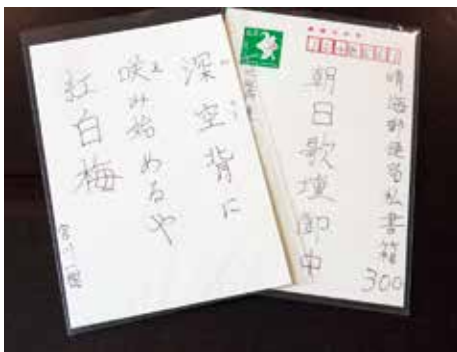 晴海郵便局私書箱300
朝日歌壇御中
深空背に
咲み始めるや
紅白梅